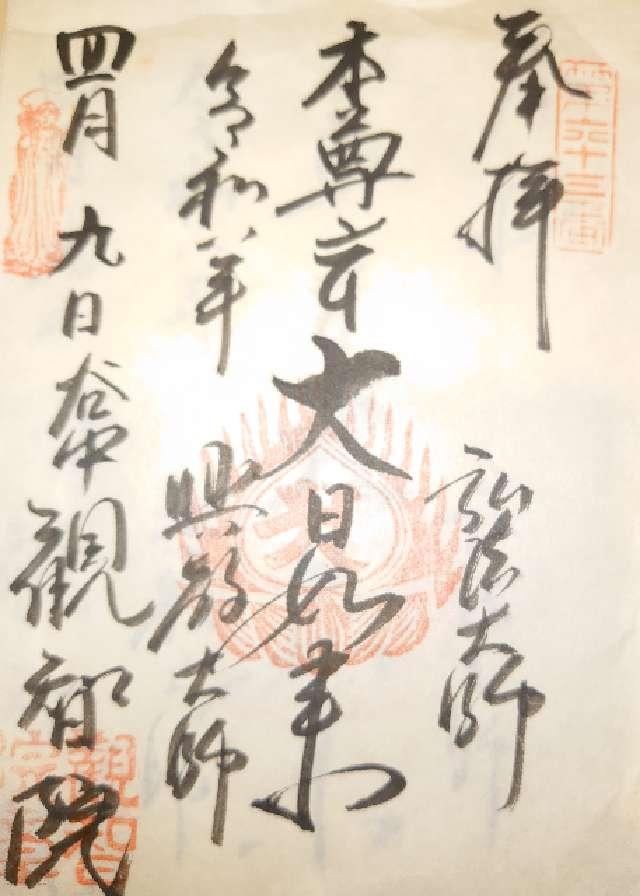 第六十三番
奉拝
弘法大師
本尊
大日如来
令和八年
興教大師
四月九日谷中観智院
観智院